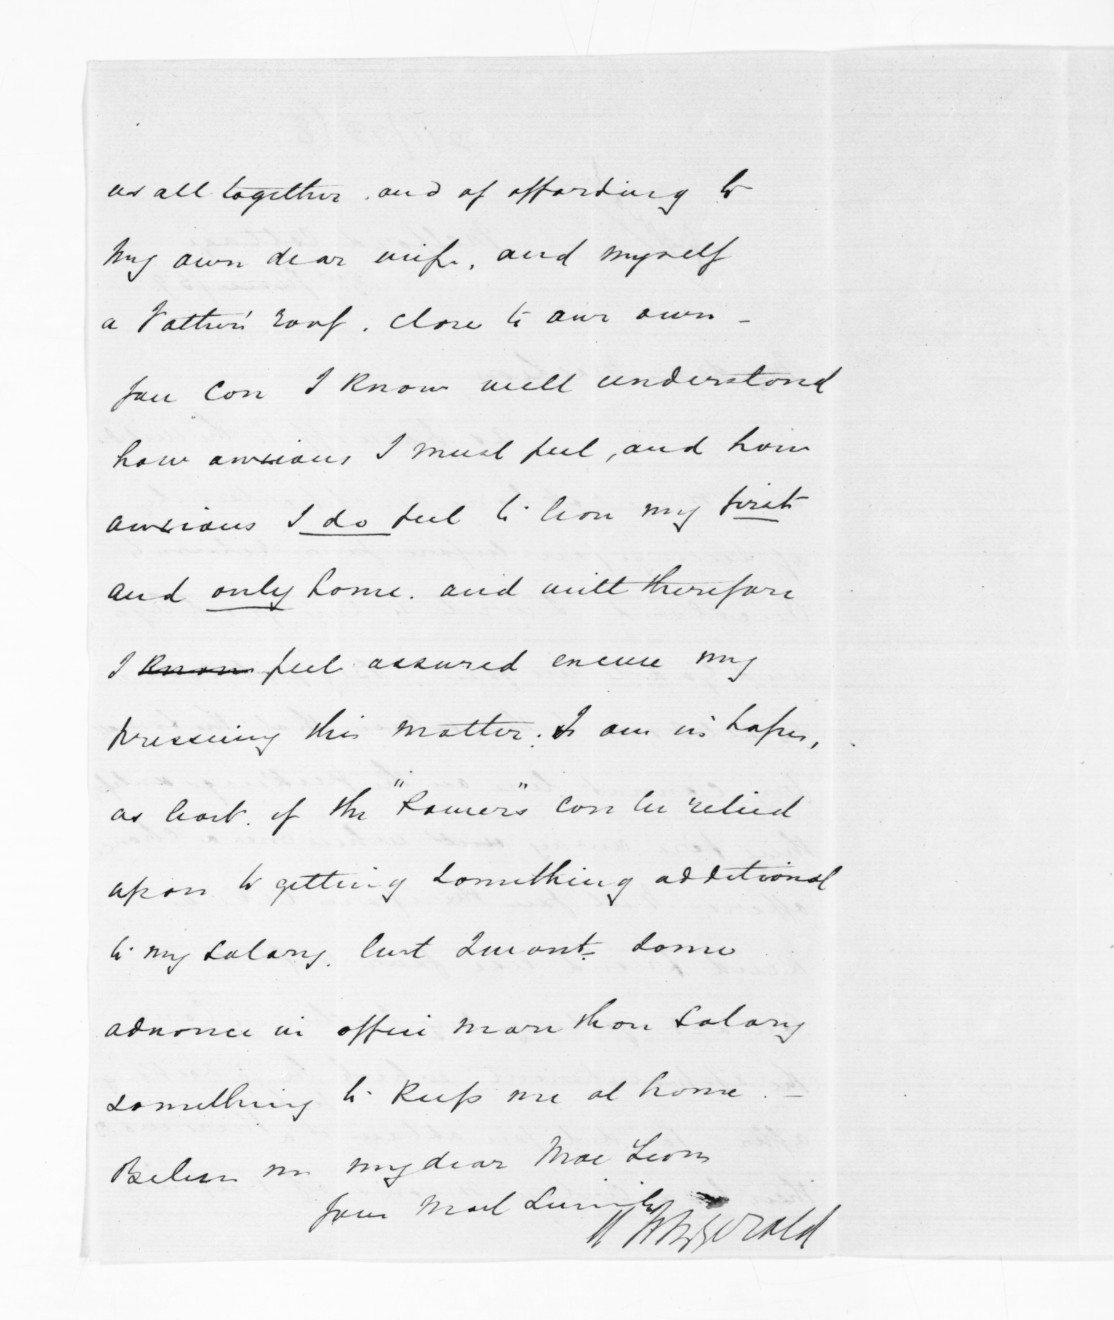 us all together. and of affording to
my own dear wife, and myself
a Father's roof. close to our own -
you can I know well understand
how anxious I must feel, and how
anxious I do feel to have my first
and only home. and will therefore
I know feel assured excuse my
pressing this matter. I am in hopes,
as heart. of the "Powers" can be relied
upon to getting something additional
to my salary. but I want some
advance in office more than salary
something to keep me at home. -
Believe me my dear Mac Lean
Your Most Sincerely
Fitzgerald